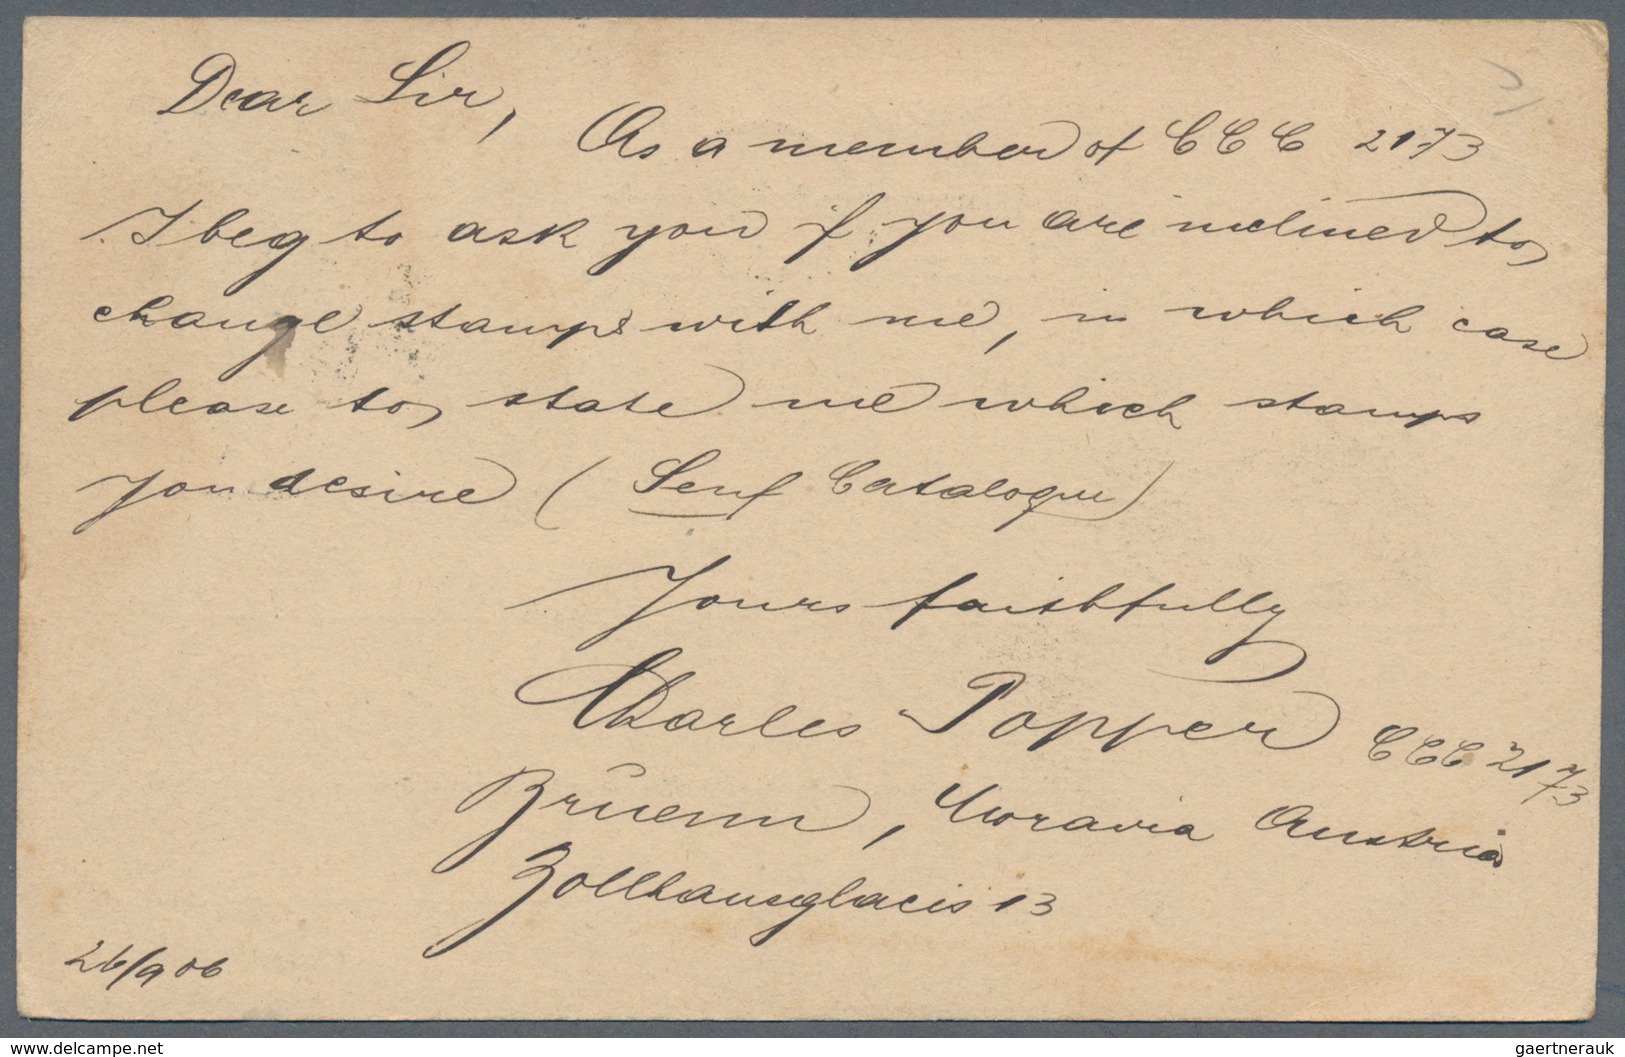 Dear Sir,
As a member of CCC 2173
I beg to ask you if you are inclined to
change stamps with me, in which case
please to state me which stamps
you desire (Senf Catalogue)
Yours faithfully
Charles Popper CCC 2173
Bruenn, Moravia Austria
Zollhausglacis 13
26/9 06
www.delcampe.net
gaertnerauk